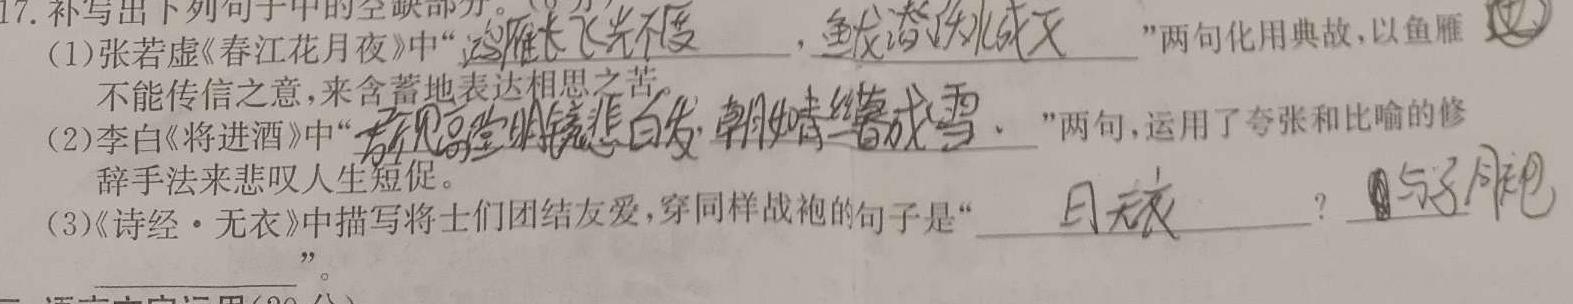 17.补写出下列句子中的空缺部分。(6分)
(1)张若虚《春江花月夜》中“鸿雁长飞光不度，鱼龙潜跃水成文”两句化用典故,以鱼雁
不能传信之意,来含蓄地表达相思之苦。
(2)李白《将进酒》中“君不见高堂明镜悲白发,朝如青丝暮成雪.”两句,运用了夸张和比喻的修
辞手法来悲叹人生短促。
(3)《诗经·无衣》中描写将士们团结友爱,穿同样战袍的句子是“曰无衣?与子同袍
”。